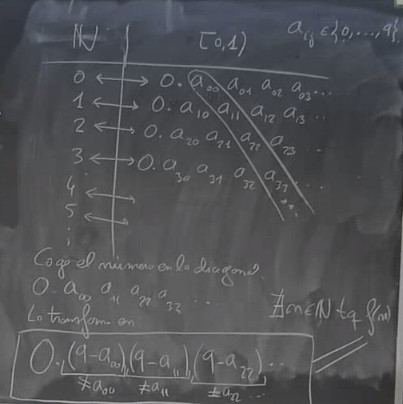 ℕ [0,1) a_ij ∈ {0,...,9}
0 ↔ 0. a_00 a_01 a_02 a_03 ...
1 ↔ 0. a_10 a_11 a_12 a_13 ...
2 ↔ 0. a_20 a_21 a_22 a_23 ...
3 ↔ 0. a_30 a_31 a_32 a_33 ...
4 ↔
5 ↔
⋮
Cojo el número en la diagonal.
0. a_00 a_11 a_22 a_33 ...
Lo transformo en ∄ n ∈ ℕ tq f(n)
0. (9-a_00)(9-a_11)(9-a_22)...
≠a_00 ≠a_11 ≠a_22 ...